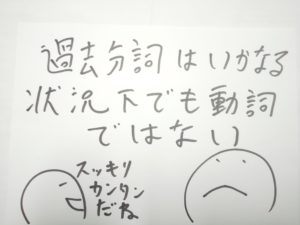 過去分詞はいかなる
状況下でも動詞
ではない
スッキリ
カンタン
だね